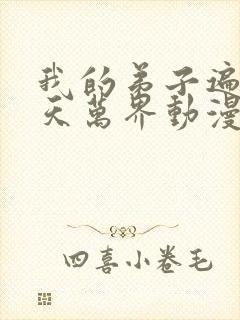 我的弟子遍
天萬界動漫
四喜小卷毛